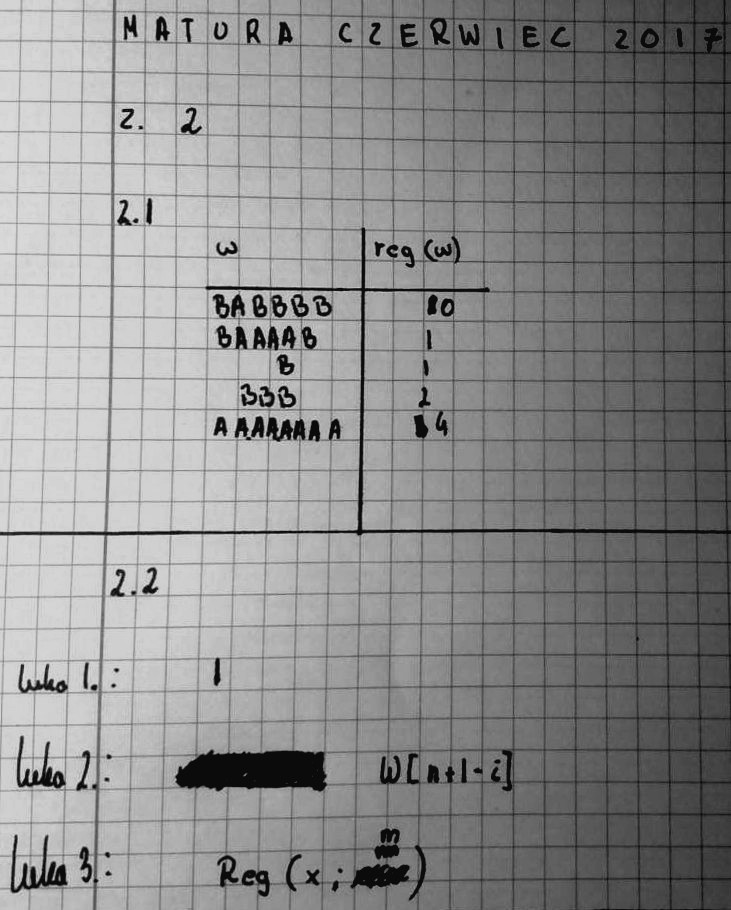 MATURA CZERWIEC 2017
Z. 2
2.1
w reg (w)
BABBBB 10
BAAAAB 1
B 1
BBB 2
AAAAAAAA 4
2.2
luka 1.: 1
luka 2.: W[n+1-i]
luka 3.: Reg (x; m)